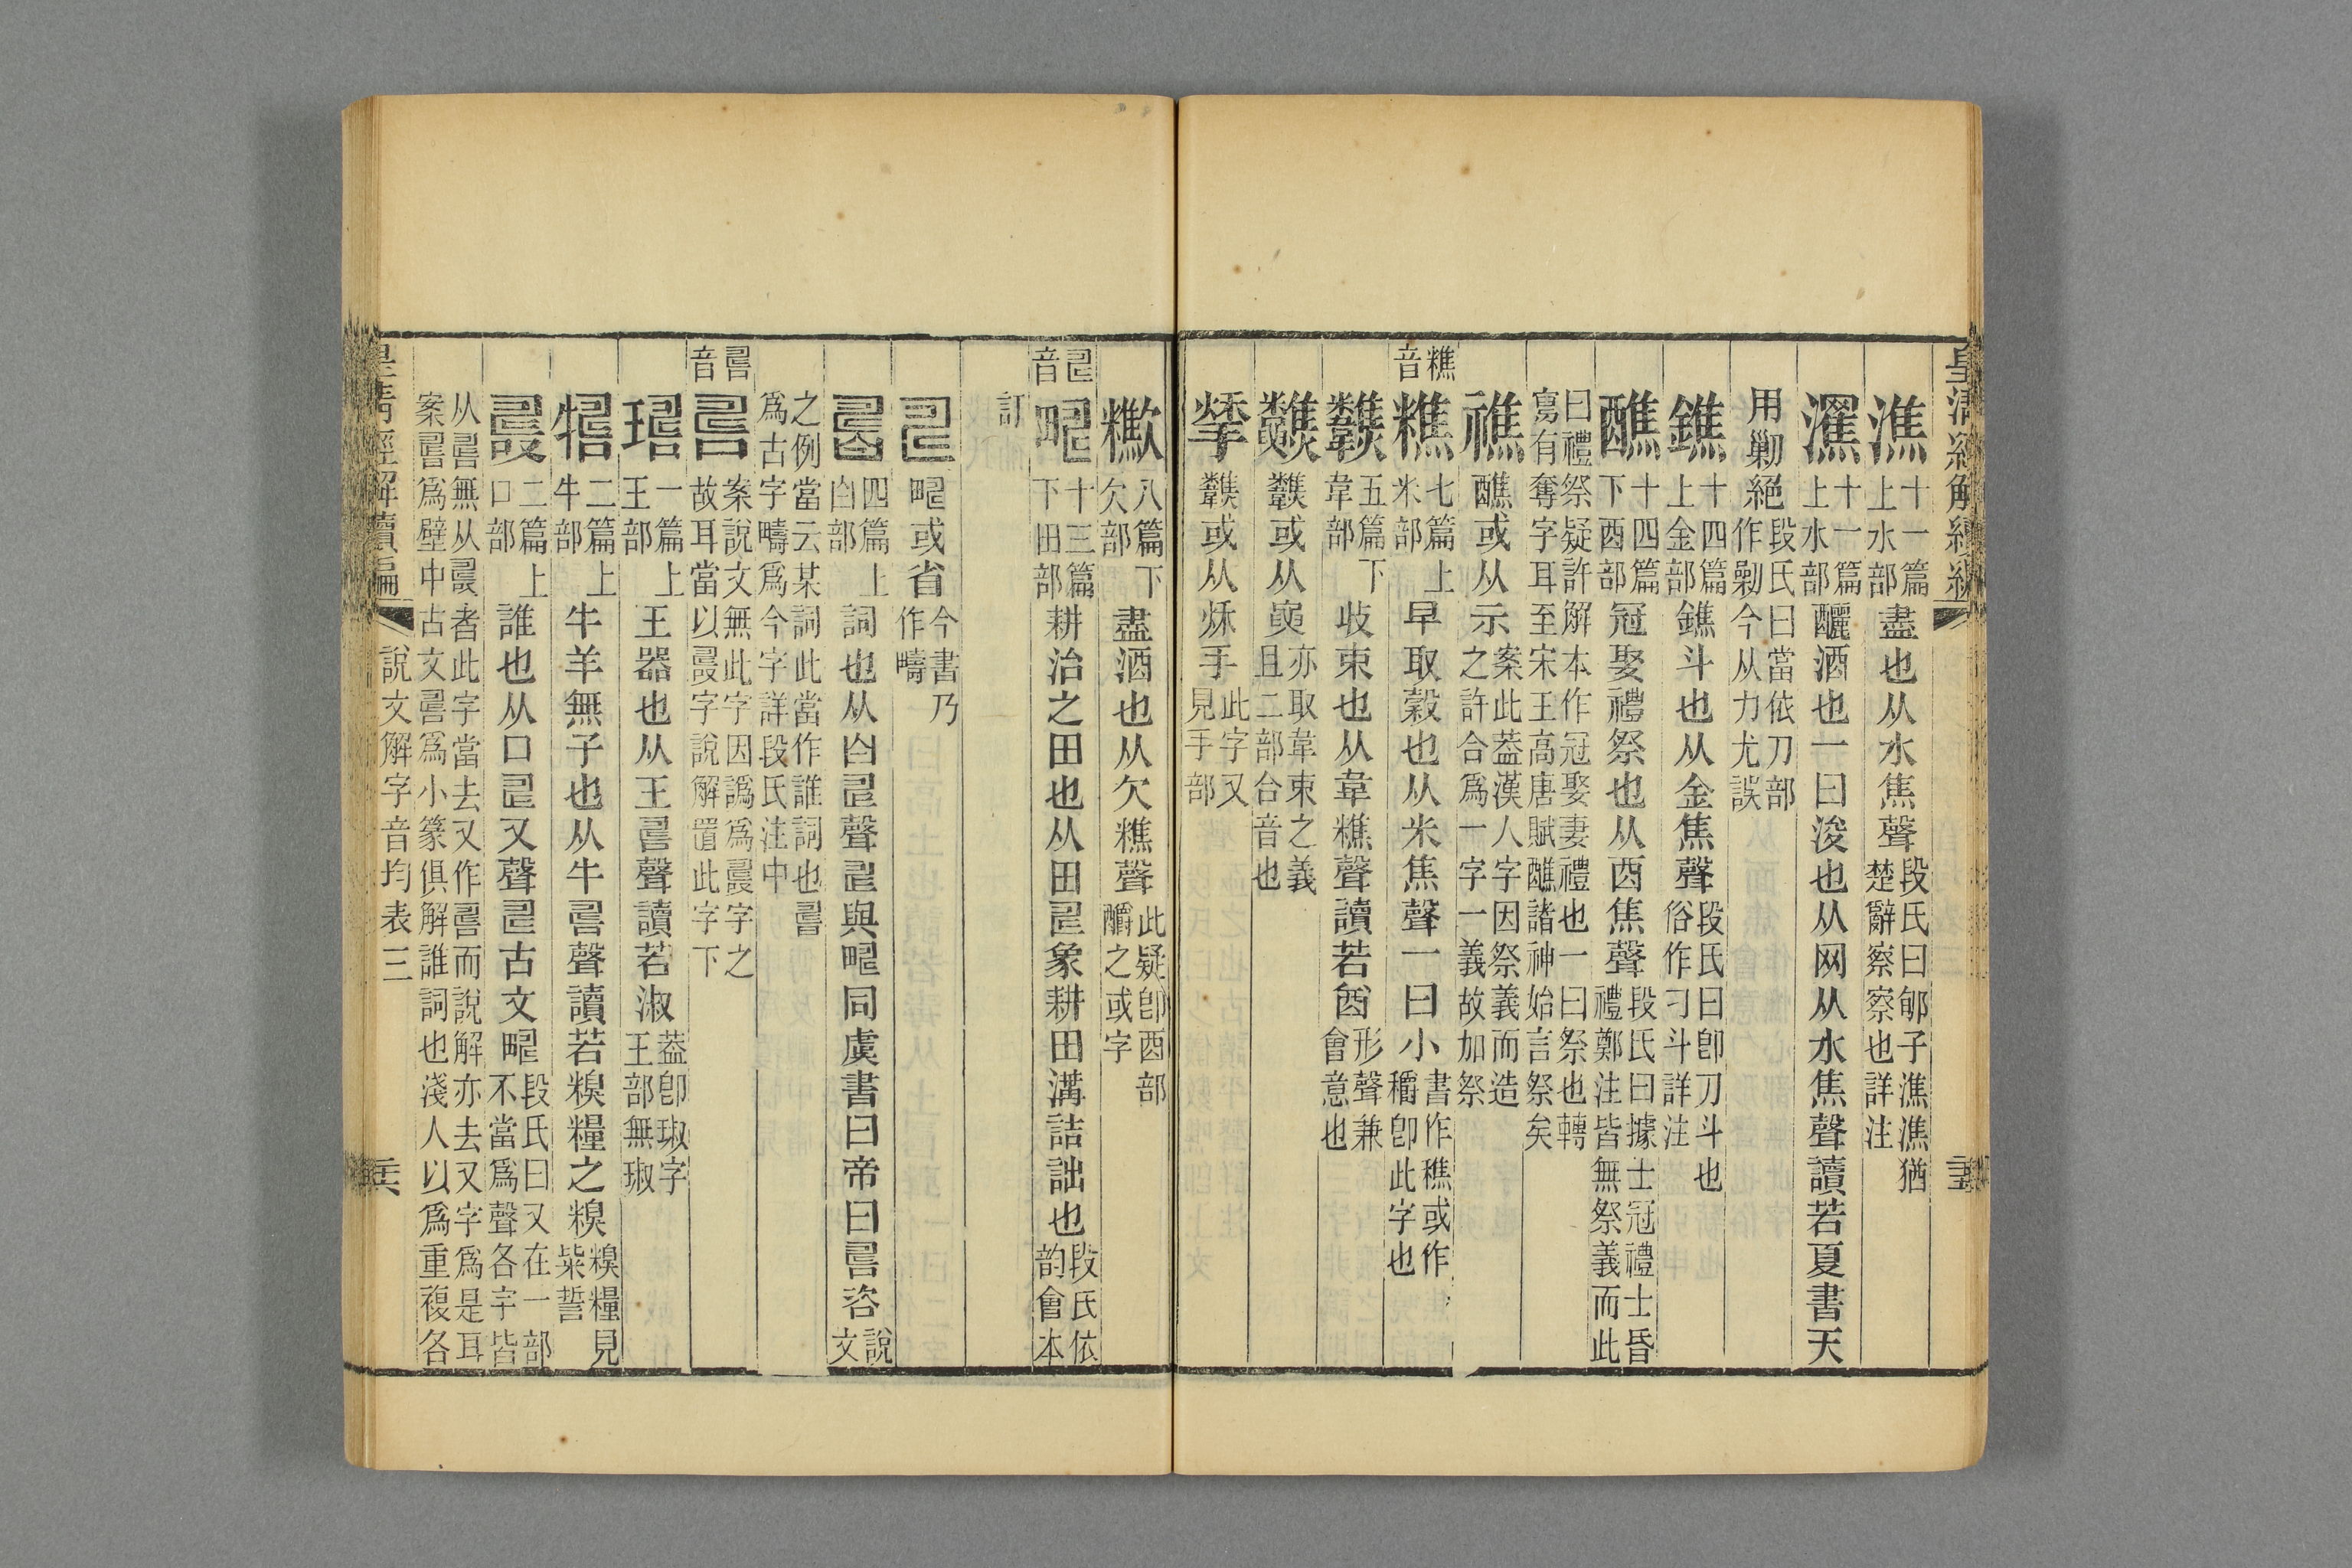 皇清經解續編
潐十一篇上水部盡也从水焦聲段氏曰郇子潐潐猶楚辭察察也詳注
灑酒也一曰浚也从网从水焦聲讀若夏書天
用勦絕段氏曰當依刀部作剿今从力尤誤
鐎十四篇上金部鐎斗也从金焦聲段氏曰卽刀斗也俗作刁斗詳注
醮十四篇下酉部冠娶禮祭也从酉焦聲段氏曰據士冠禮士昏禮鄭注皆無祭義而此
曰禮祭疑許解本作冠娶妻禮也一曰祭也轉寫有奪字耳至宋王高唐賦醮諸神始言祭矣
𥛲醮或从示案此葢漢人字因祭義而造之許合爲一字一義故加祭
糕音
糕七篇上米部早取穀也从米焦聲一曰小書作穛或作穱卽此字也
五篇下韋部收束也从韋糕聲讀若酋形聲兼會意也
或从亦取韋束之義且二部台音也
𢮾或从秌手此字又見手部
八篇下欠部盡酒也从欠糕聲此疑卽酉部釂之或字
𠃬音
𤲮十三篇下田部耕治之田也从田𠃬象耕田溝詰詘也段氏依韵會本
訂
𠃬𤲮或省今書乃作疇
四篇上白部詞也从白𠃬聲𠃬與𤲮同虞書曰帝曰咨說文
之例當云某詞此當作誰詞也爲古字疇爲今字詳段氏注中
音
案說文無此字因譌爲字之故耳當以字說解置此字下
一篇上王部王器也从王聲讀若淑葢卽琡字王部無琡
二篇上牛部牛羊無子也从牛聲讀若糗糧之糗糗糧見粊誓
二篇上口部誰也从口𠃬又聲𠃬古文𤲮段氏曰又在一部不當爲聲各字皆
从無从者此字當去又作而說解亦去又字爲是耳案爲壁中古文爲小篆俱解誰詞也淺人以爲重複各
皇清經解續編 說文解字音均表三